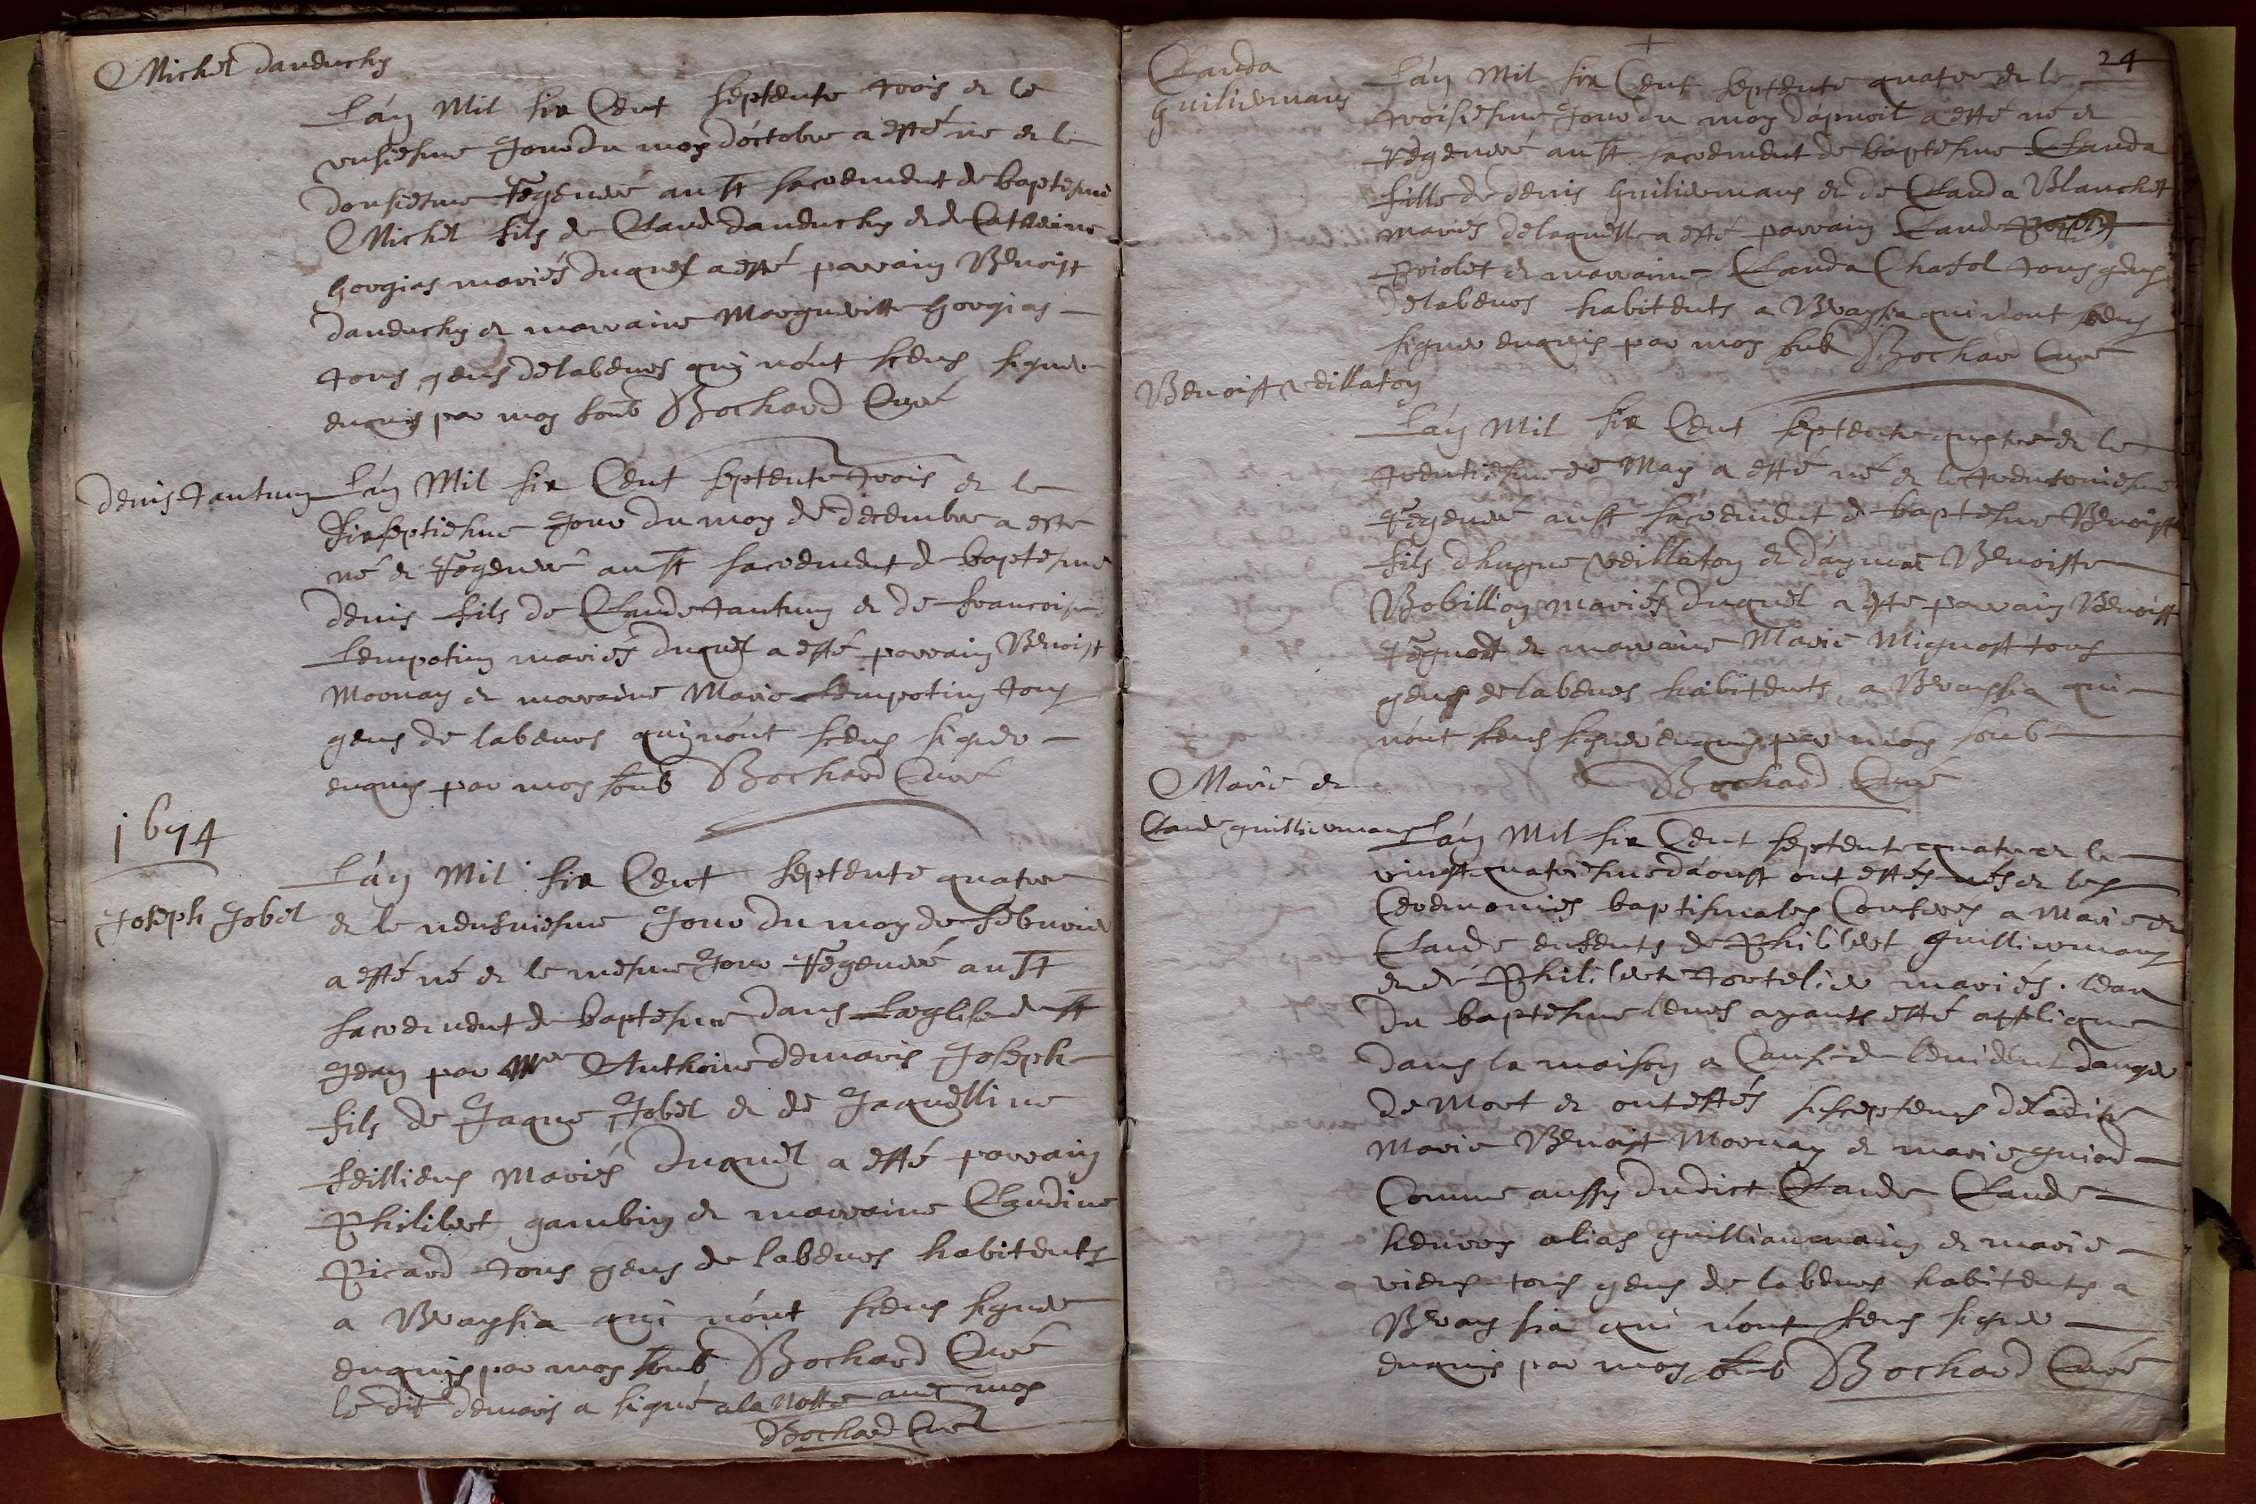 Michel Danduchy
L'an Mil six Cent septente trois et le
unsiesme Jour du moy d'octobre a esté né et le
dousiesme Regeneré au St sacrement de baptesme
Michel fils de Claude Danduchy et de Catherine
Gorgias mariés duquel a esté parrain Benoist
danduchy et marraine Marguerite Gorgias
tous gens de labeurs qui n'ont sceus signer
enquis par moy soub Bochard Curé
Denis Tantum
L'an Mil six Cent septente trois et le
dixseptiesme Jour du moy de decembre a esté
né et Regeneré au St sacrement de baptesme
denis fils de Claude Tantum et de francoise
Lempotim mariés duquel a esté parrain Benoist
Mornay et marraine Marie Lempotim tous
gens de labeurs qui n'ont sceus signer
enquis par moy soub Bochard Curé
1674
Joseph Jobel
L'an Mil six Cent septente quatre
et le neufviesme Jour du moy de febvrier
a esté né et le mesme Jour Regeneré au St
sacrement de baptesme dans L'æglise de St
Jean par Mre Anthoine Demaris Joseph
fils de Jaque Jobel et de Jaquelline
feilliens Mariés duquel a esté parrain
Philibert gambin et marraine Claudine
Picard tous gens de labeurs habitents
a Braysia qui n'ont sceus signer
enquis par moy soub Bochard Curé
le dit demaris a signé a la notte avec moy
Bochard Curé
24
Clauda
Guilliermans
L'an Mil six Cent septente quatre et le
troisiesme Jour du moy d'apvril a esté né et
Regeneré au St sacrement de baptesme Clauda
fille de denis Guiliermans et de Clauda Blanchet
mariés de laquelle a esté parrain Claude
Priolet et marraine Clauda Chatol tous gens
de labeurs habitents a Braysia qui n'ont sceus
signer enquis par moy soub Bochard Curé
Benoist veillaton
L'an Mil six Cent septente quatre et le
trentiesme de May a esté né et le trenteuniesme
Regeneré au St sacrement de baptesme Benoist
fils d'hugue veillaton et d'aymae Benoiste
Bobillion mariés duquel a esté parrain Benoist
Regnost et marraine Marie Mignost tous
gens de labeurs habitents a Braysia qui
n'ont sceus signer enquis par moy soub
Bochard Curé
Marie et
Claude guilliermans
L'an Mil six Cent septente quatre et le
vingt quatriesme d'aoust ont estés nés et les
Ceremonies baptismales Conferés a Marie et
Claude enfents de Philibert guilliermans
et de Philiberte Tortelier mariés. l'eau
du baptesme leurs ayants esté appliquee
dans la maison a Cause de l'evident danger
de Mort et ont estés susepteurs de ladite
Marie Benoist Mornay et marie guiod
Comme aussy dudict Claude Claude
henrry alias guilliaumain et marie
viens tous gens de labeurs habitents a
Braysia qui n'ont sceus signer
enquis par moy soub Bochard Curé